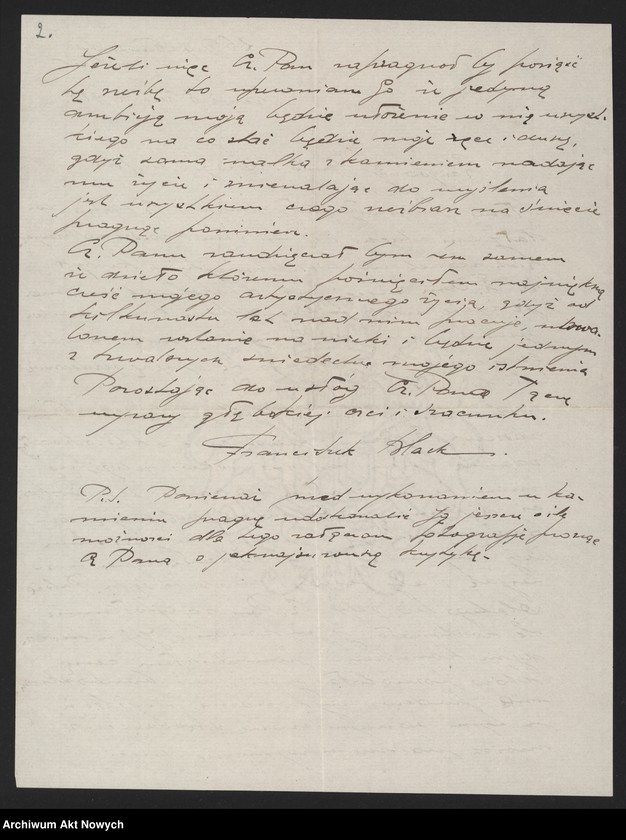 2.
Jeżeli więc Cz. Pan zapragnął by posiąść
tę rzeźbę to upewniam Go iż jedyną
ambicją moją będzie włożenie w nią wszyst-
kiego na co stać będzie moje ręce i duszę,
gdyż sama walka z kamieniem nadając
mu życie i zniewalając do myślenia
jest wszystkiem czego rzeźbiarz na świecie
pragnąć powinien.
Cz. Panu zawdzięczał bym tem samem
iż dzieło któremu poświęciłem największą
część mojego artystycznego życia, gdyż od
kilkunastu lat nad nim pracuję,
zostanie na wieki i będzie jednym
z trwałych świadectw mojego istnienia
Pozostając do usług Cz. Pana łączę
wyrazy głębokiej czci i szacunku.
Franciszek Black.
P.S. Ponieważ przed wykonaniem w ka-
mieniu pragnę udoskonalić ją jeszcze o ile
możności dla tego załączam fotografje prosząc
Cz. Pana o jaknajszerszą krytykę.
Archiwum Akt Nowych